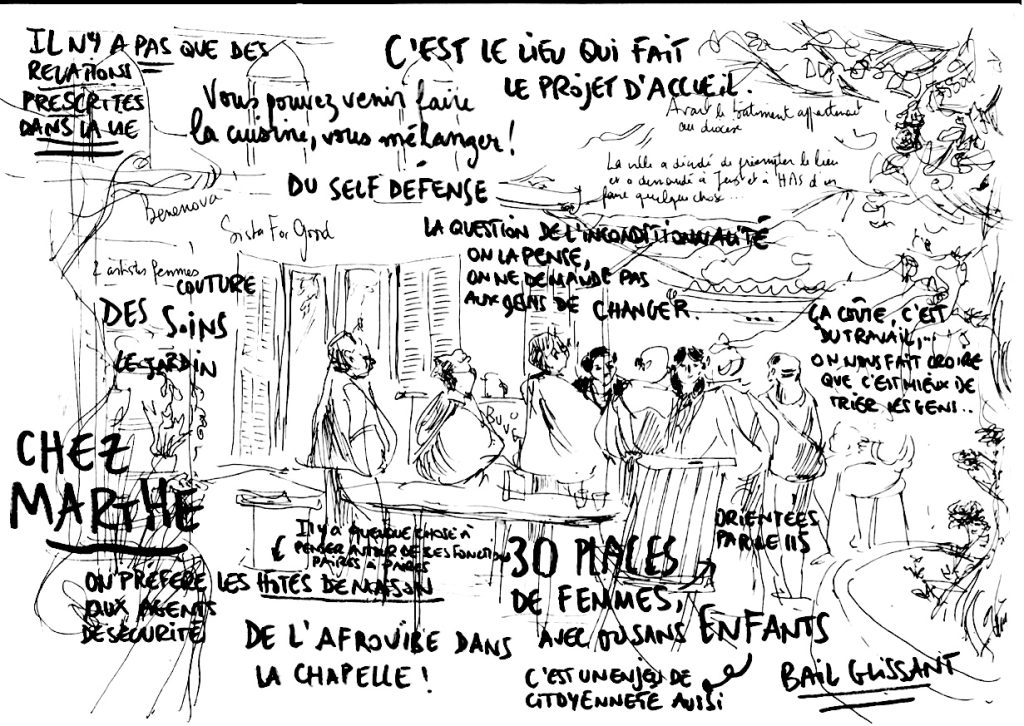 IL N'Y A PAS QUE DES
RELATIONS
PRESCRITES
DANS LA VIE
C'EST LE LIEU QUI FAIT
LE PROJET D'ACCUEIL.
Vous pouvez venir faire
la cuisine, vous mélanger !
Avant le bâtiment appartenait
au diocèse
DU SELF DÉFENSE
La ville a décidé de préempter le lieu
et a demandé à Just et à HAS d'en
faire quelque chose...
Benenova
Sista For Good
LA QUESTION DE L'INCONDITIONNALITÉ
ON LA PENSE,
ON NE DEMANDE PAS
AUX GENS DE CHANGER ...
2 artistes femmes
COUTURE
DES SOINS
LE JARDIN
ÇA COÛTE, C'EST
DU TRAVAIL,...
ON NOUS FAIT CROIRE
QUE C'EST MIEUX DE
TRIER LES GENS..
BUVE
CHEZ
MARTHE
IL Y A QUELQUE CHOSE À
PENSER AUTOUR DE CES FONCTIONS
PAIRES À PAIRES
ON PRÉFÈRE LES HÔTES DE MAISON
AUX AGENTS
DE SÉCURITÉ
30 PLACES
DE FEMMES,
AVEC OU SANS ENFANTS
ORIENTÉES
PAR LE 115
DE L'AFROVIBE DANS
LA CHAPELLE !
C'EST UN ENJEU DE
CITOYENNETÉ AUSSI
BAIL GLISSANT